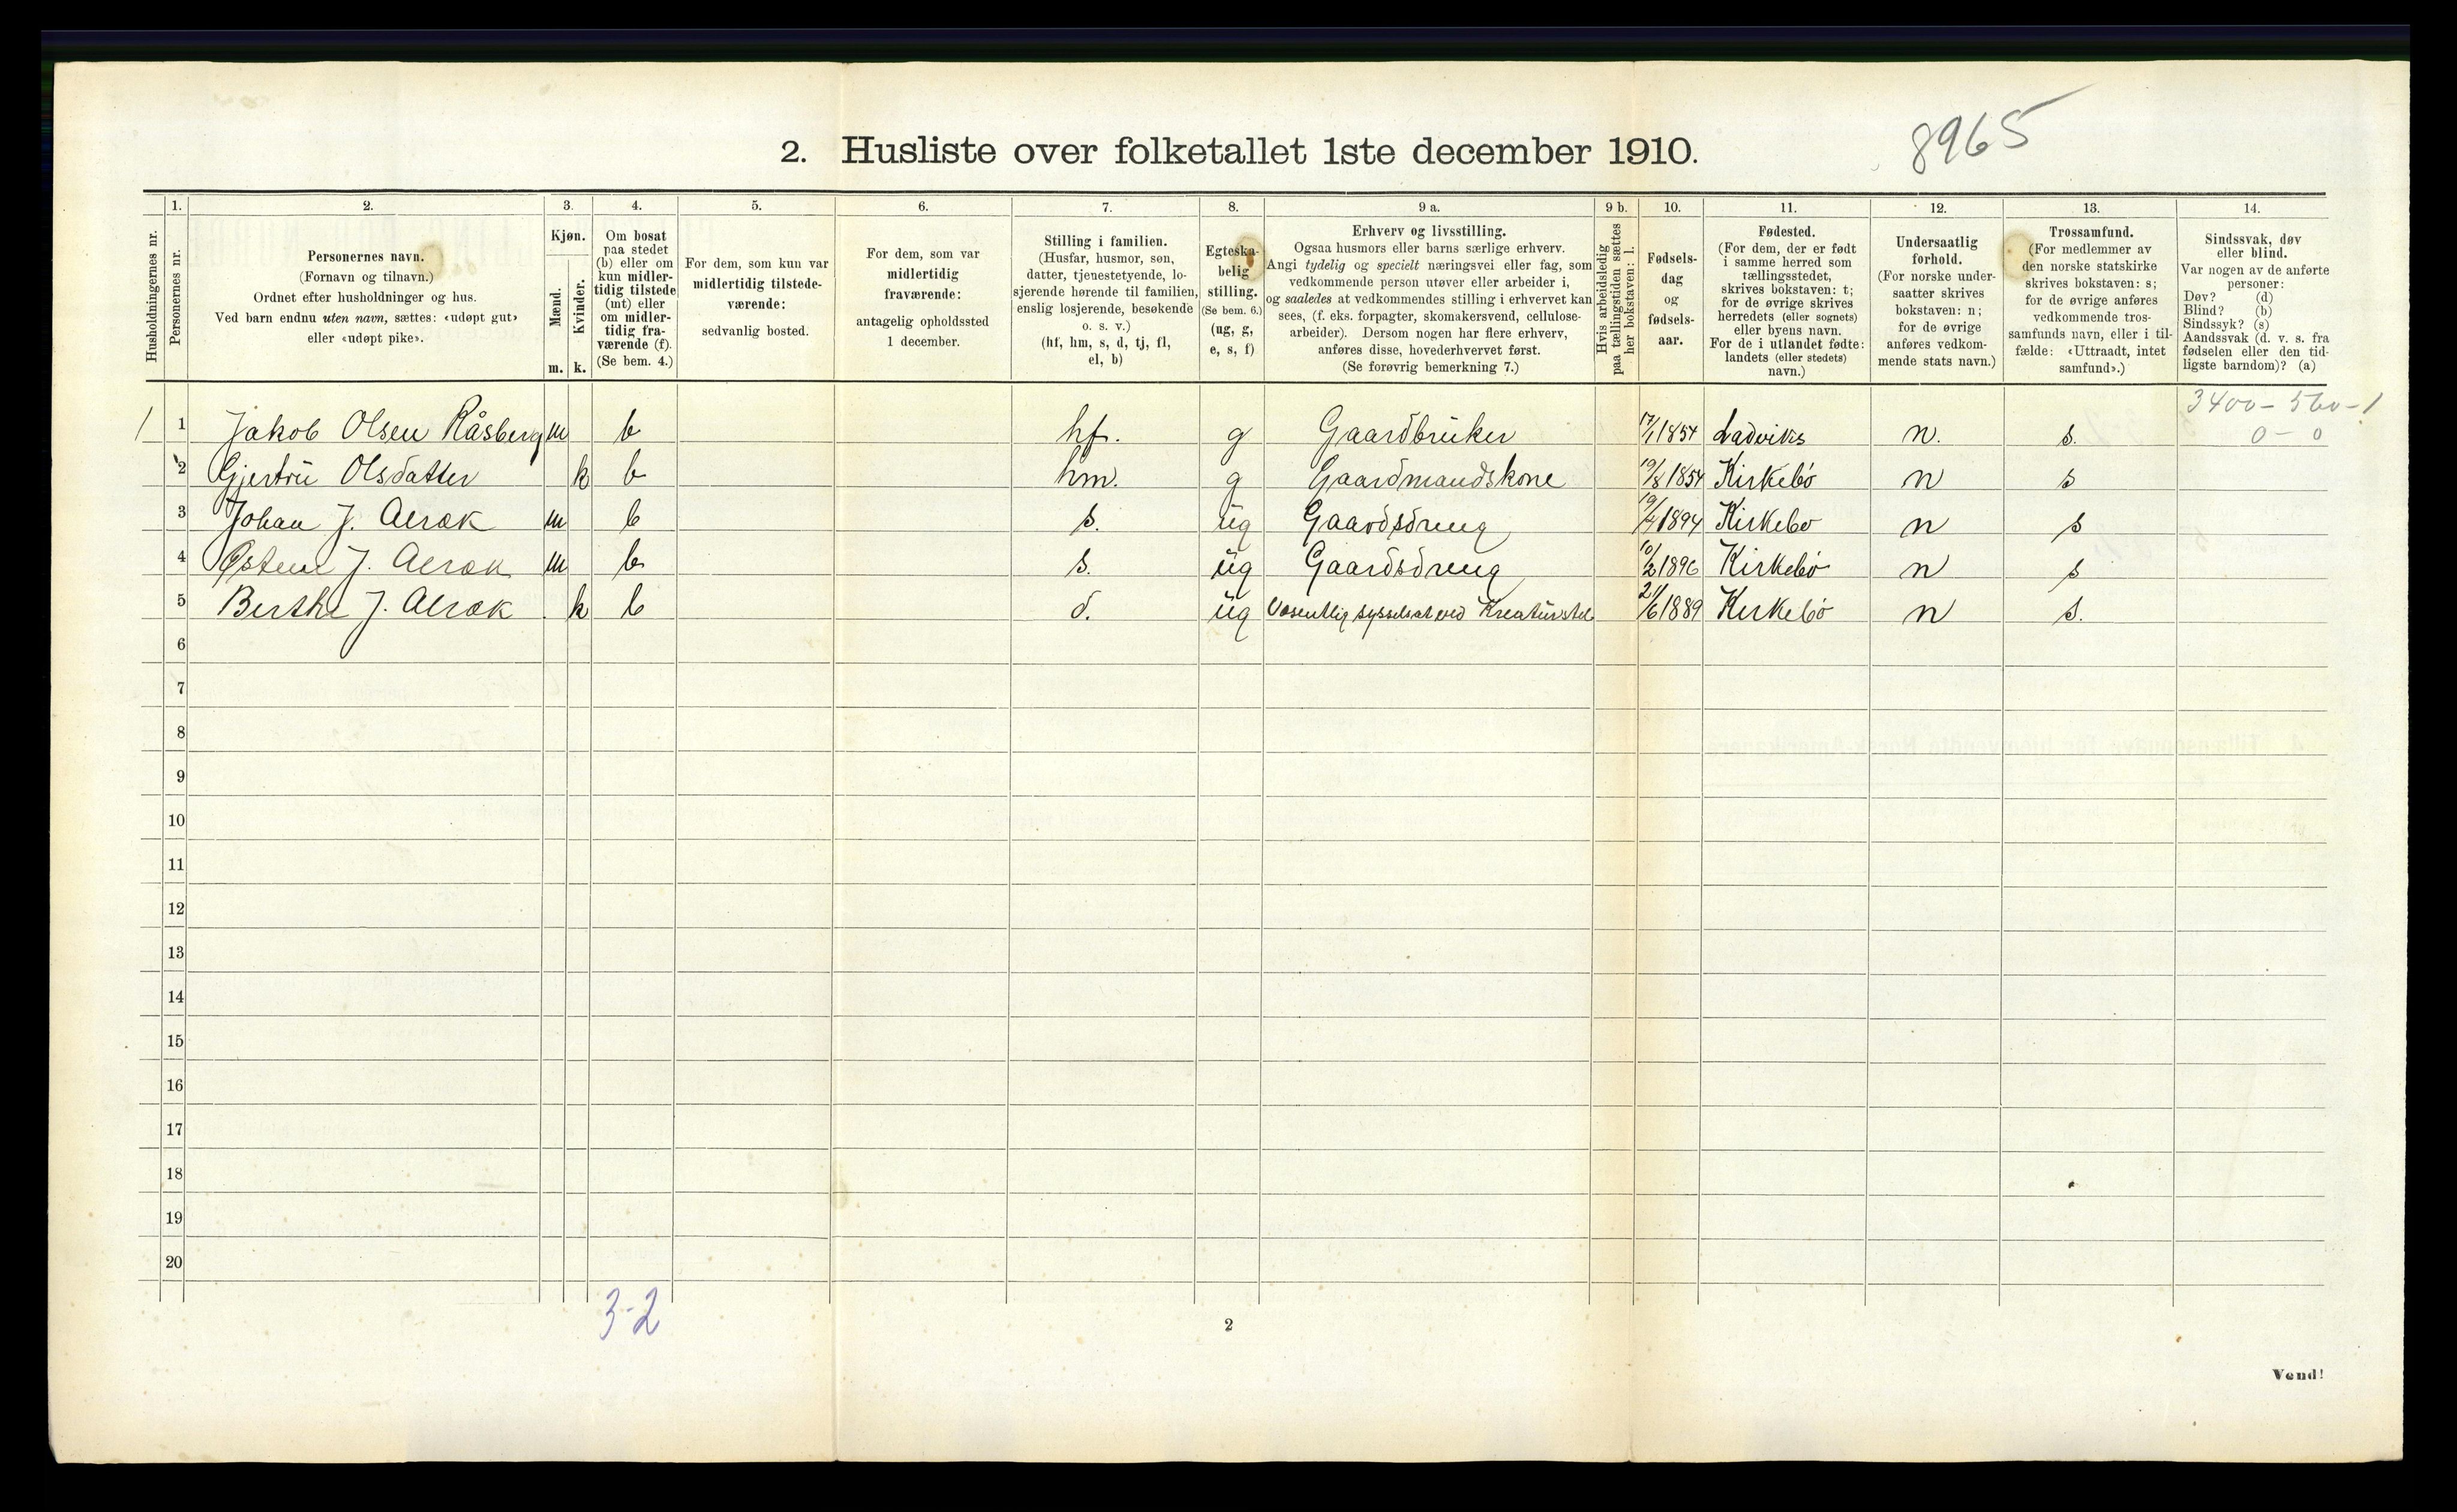 8965
2. Husliste over folketallet 1ste december 1910.
Husholdningernes nr.
1.
Personernes nr.
2.
Personernes navn.
(Fornavn og tilnavn.)
Ordnet efter husholdninger og hus.
Ved barn endnu uten navn, sættes: «udøpt gut»
eller «udøpt pike».
3.
Kjøn.
Mænd.
Kvinder.
m. k.
4.
Om bosat
paa stedet
(b) eller om
kun midler-
tidig tilstede
(mt) eller
om midler-
tidig fra-
værende (f).
(Se bem. 4.)
5.
For dem, som kun var
midlertidig tilstede-
værende:
sedvanlig bosted.
6.
For dem, som var
midlertidig
fraværende:
antagelig opholdssted
1 december.
7.
Stilling i familien.
(Husfar, husmor, søn,
datter, tjenestetyende, lo-
sjerende hørende til familien,
enslig losjerende, besøkende
o. s. v.)
(hf, hm, s, d, tj, fl,
el, b)
8.
Egteska-
belig
stilling.
(Se bem. 6.)
(ug, g,
e, s, f)
9 a.
Erhverv og livsstilling.
Ogsaa husmors eller barns særlige erhverv.
Angi tydelig og specielt næringsvei eller fag, som
vedkommende person utøver eller arbeider i,
og saaledes at vedkommendes stilling i erhvervet kan
sees, (f. eks. forpagter, skomakersvend, cellulose-
arbeider). Dersom nogen har flere erhverv,
anføres disse, hovederhvervet først.
(Se forøvrig bemerkning 7.)
9 b.
Hvis arbeidsledig
paa tællingstiden sættes
her bokstaven: l.
10.
Fødsels-
dag
og
fødsels-
aar.
11.
Fødested.
(For dem, der er født
i samme herred som
tællingsstedet,
skrives bokstaven: t;
for de øvrige skrives
herredets (eller sognets)
eller byens navn.
For de i utlandet fødte:
landets (eller stedets)
navn.)
12.
Undersaatlig
forhold.
(For norske under-
saatter skrives
bokstaven: n;
for de øvrige
anføres vedkom-
mende stats navn.)
13.
Trossamfund.
(For medlemmer av
den norske statskirke
skrives bokstaven: s;
for de øvrige anføres
vedkommende tros-
samfunds navn, eller i til-
fælde: «Uttraadt, intet
samfund».)
14.
Sindssvak, døv
eller blind.
Var nogen av de anførte
personer:
Døv? (d)
Blind? (b)
Sindssyk? (s)
Aandssvak (d. v. s. fra
fødselen eller den tid-
ligste barndom)? (a)
3400 – 560 – 1
0 – 0
1 1 Jakob Olsen Råsberg m b hf. g Gaardbruker 17/1 1854 Ladviks n. s.
2 Gjertru Olsdatter k b hm. g Gaardmandskone 19/8 1854 Kirkebø n s
3 Johan J. Alræk m b s. ug Gaardsdreng 19/4 1894 Kirkebø n s
4 Østen J. Alræk m b s. ug Gaardsdreng 10/2 1896 Kirkebø n s
5 Berthe J. Alræk k b d. ug Væsentlig sysselsat ved Kreaturstel 21/6 1889 Kirkebø n s.
6
7
8
9
10
11
12
13
14
15
16
17
18
19
20
3-2
2
Vend!